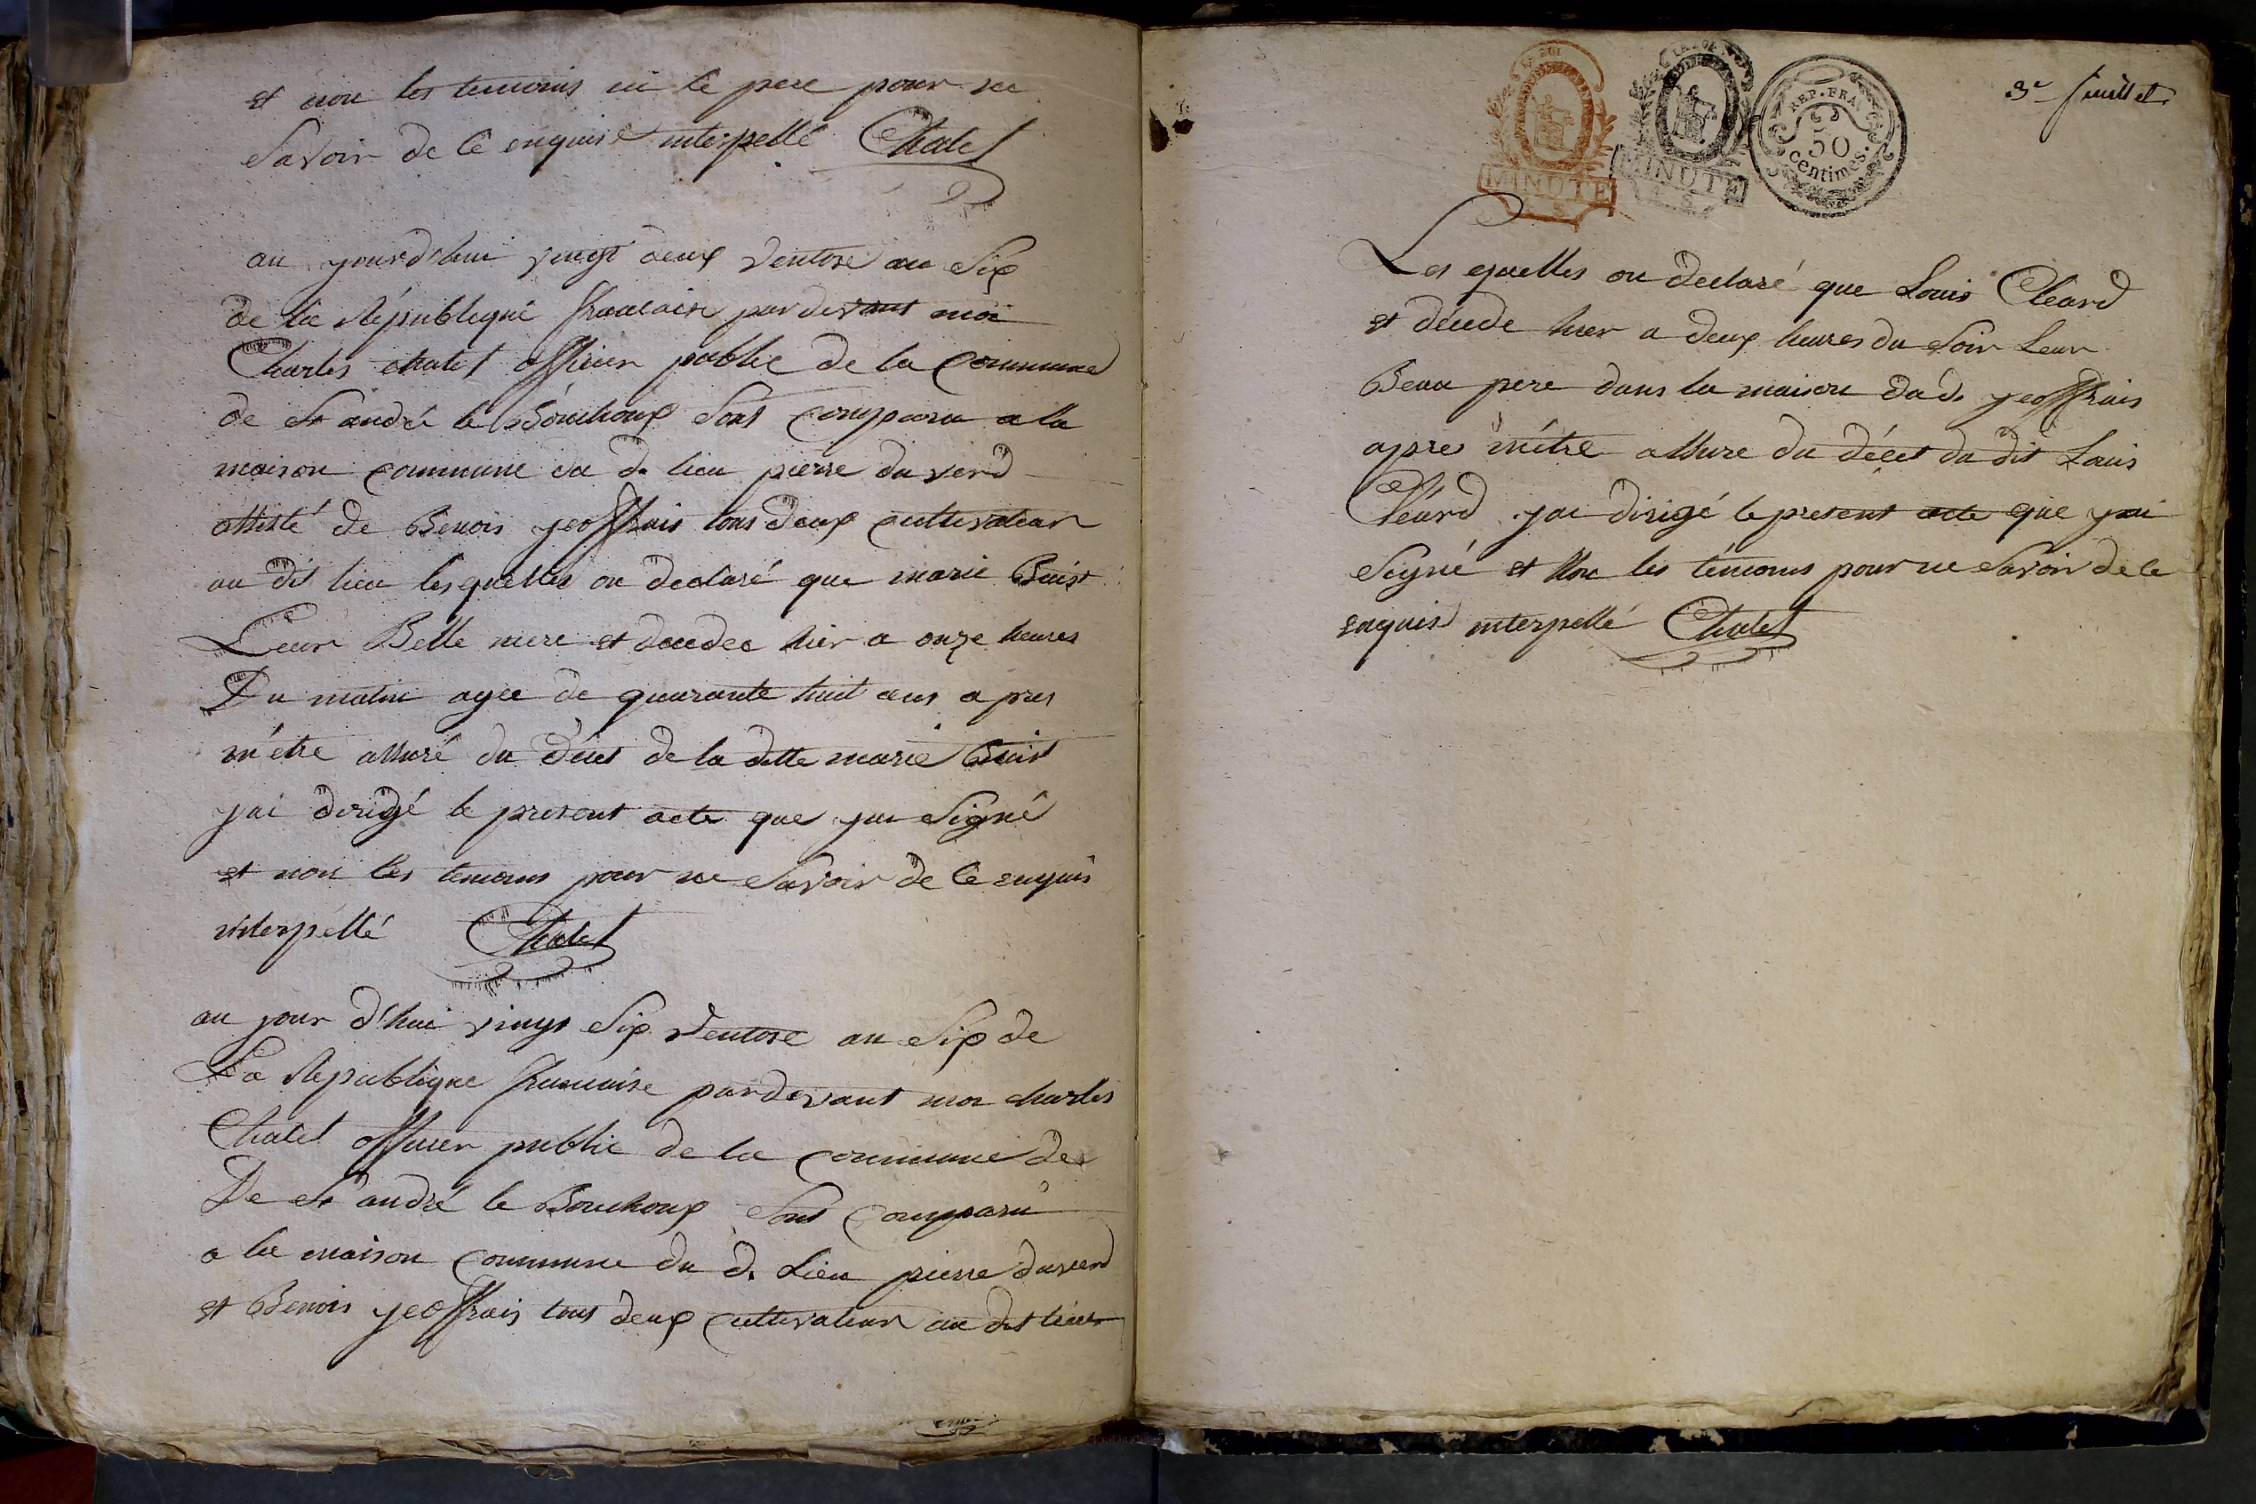 et non les temoins ni le pere pour ne
Savoir de ce enquis et interpellé Chatel
au jourd'hui vingt deux ventose an Six
de la République francaise pardevant moi
Charles chatel officier public de la commune
de St andré le Bouchoux Sont comparu a la
maison commune du d. lieu pierre duverd
assisté de Benois yeoffrais tous deux cultivateur
au dit lieu lesquelles on declaré que marie Buist
Leur Belle mere et decedee hier a onze heures
Du matin agee de quarante huit ans a pres
m'etre assuré du déces de la ditte marie Buist
jai dirigé le present acte que jai Signé
et non les temoins pour ne Savoir de ce enquis
interpellé Chatel
au jour d'hui vingt Six ventose an Six de
La République francaise pardevant moi charles
Chatel officier public de la commune de
De St andré le Bouchoux Sont comparu
a la maison commune du d. Lieu pierre duverd
et Benois yeoffrais tous deux cultivateur au dit lieu
3e feuillet.
MINUTE
MINUTE
REP. FRA.
50
centimes.
Les quelles on declaré que Louis Cleard
et décedé hier a deux heures du Soir Leur
Beau pere dans la maison dud. yeoffrais
apres m'être assure du décet du dit Louis
Cléard jai dirigé le present acte que jai
Signé et Non les témoins pour ne Savoir de ce
enquis interpellé Chatel